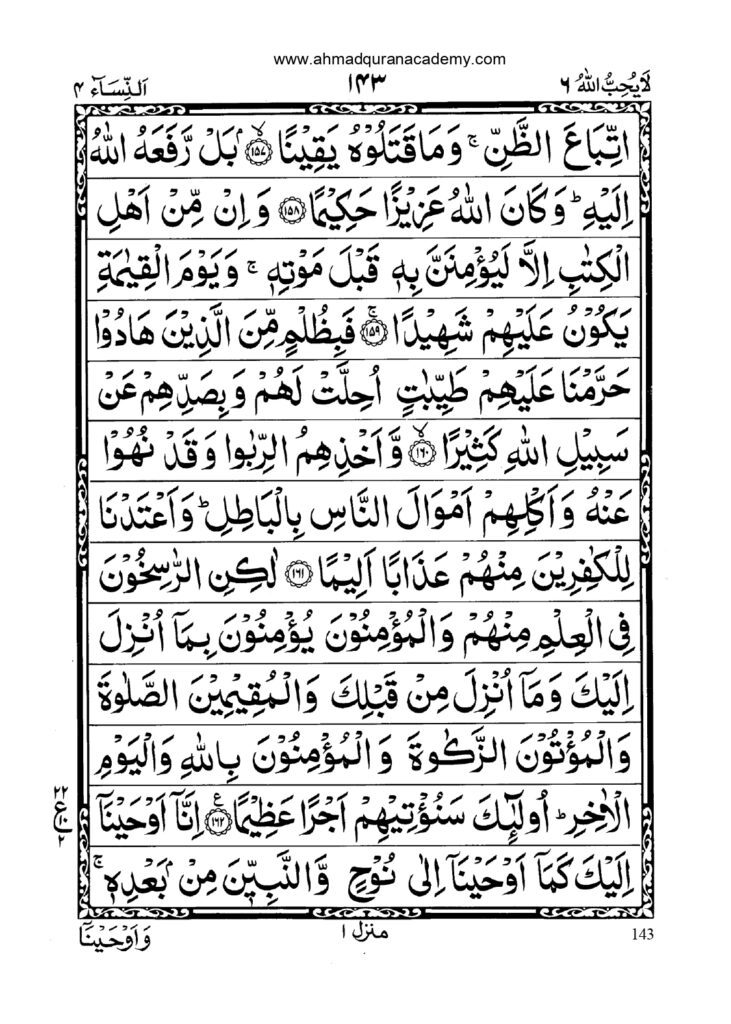 www.ahmadquranacademy.com
لَا يُحِبُّ اللهُ ٦
١٤٣
اَلنِّسَآء ٤
اتِّبَاعَ الظَّنِّ ۚ وَمَا قَتَلُوْهُ يَقِيْنًا ۙ﴿١٥٧﴾ بَلْ رَّفَعَهُ اللهُ
اِلَيْهِ ؕ وَكَانَ اللهُ عَزِيْزًا حَكِيْمًا ﴿١٥٨﴾ وَاِنْ مِّنْ اَهْلِ
الْكِتٰبِ اِلَّا لَيُؤْمِنَنَّ بِهٖ قَبْلَ مَوْتِهٖ ۚ وَيَوْمَ الْقِيٰمَةِ
يَكُوْنُ عَلَيْهِمْ شَهِيْدًا ۚ﴿١٥٩﴾ فَبِظُلْمٍ مِّنَ الَّذِيْنَ هَادُوْا
حَرَّمْنَا عَلَيْهِمْ طَيِّبٰتٍ اُحِلَّتْ لَهُمْ وَبِصَدِّهِمْ عَنْ
سَبِيْلِ اللهِ كَثِيْرًا ۙ﴿١٦٠﴾ وَّاَخْذِهِمُ الرِّبٰوا وَقَدْ نُهُوْا
عَنْهُ وَاَكْلِهِمْ اَمْوَالَ النَّاسِ بِالْبَاطِلِ ؕ وَاَعْتَدْنَا
لِلْكٰفِرِيْنَ مِنْهُمْ عَذَابًا اَلِيْمًا ﴿١٦١﴾ لٰكِنِ الرّٰسِخُوْنَ
فِى الْعِلْمِ مِنْهُمْ وَالْمُؤْمِنُوْنَ يُؤْمِنُوْنَ بِمَاۤ اُنْزِلَ
اِلَيْكَ وَمَاۤ اُنْزِلَ مِنْ قَبْلِكَ وَالْمُقِيْمِيْنَ الصَّلٰوةَ
وَالْمُؤْتُوْنَ الزَّكٰوةَ وَالْمُؤْمِنُوْنَ بِاللهِ وَالْيَوْمِ
الْاٰخِرِ ؕ اُولٰٓئِكَ سَنُؤْتِيْهِمْ اَجْرًا عَظِيْمًا ﴿١٦٢﴾ اِنَّاۤ اَوْحَيْنَاۤ
٢٢
ع
٢
اِلَيْكَ كَمَاۤ اَوْحَيْنَاۤ اِلٰى نُوْحٍ وَّالنَّبِيّٖنَ مِنْۢ بَعْدِهٖ ۚ
143
منزل ١
وَاَوْحَيْنَاۤ